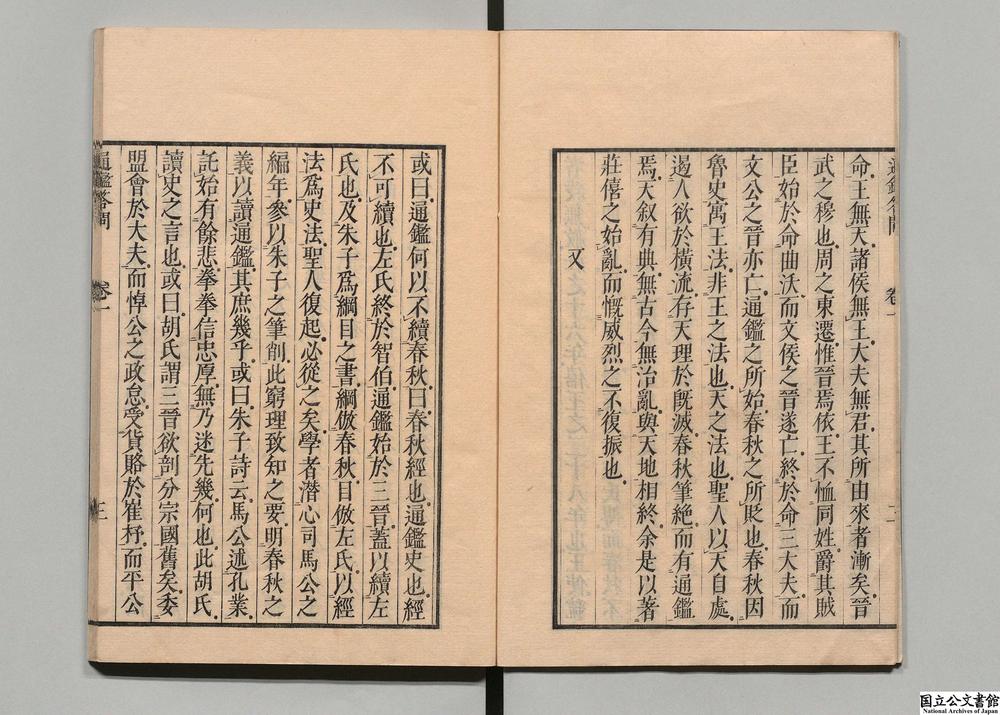 命王無天諸侯無王大夫無君其所由來者漸矣晉
武之穆也周之東遷惟晉焉依王不恤同姓爵其賊
臣始於命曲沃而文侯之晉遂亡終於命三大夫而
文公之晉亦亡通鑑之所始春秋之所貶也春秋因
魯史寓王法非王之法也天之法也聖人以天自處
遏人欲於橫流存天理於旣滅春秋筆絕而有通鑑
焉天叙有典無古今無治亂與天地相終余是以著
莊僖之始亂而慨威烈之不復振也
又
或曰通鑑何以不續春秋曰春秋經也通鑑史也經
不可續也左氏終於智伯通鑑始於三晉蓋以續左
氏也及朱子爲綱目之書綱倣春秋目倣左氏以經
法爲史法聖人復起必從之矣學者潛心司馬公之
編年參以朱子之筆削此窮理致知之要明春秋之
義以讀通鑑其庶幾乎或曰朱子詩云馬公述孔業
託始有餘悲拳拳信忠厚無乃迷先幾何也此胡氏
讀史之言也或曰胡氏謂三晉欲剖分宗國舊矣委
盟會於大夫而悼公之政怠受貨賂於崔杼而平公
通鑑答問 卷一 二
通鑑答問 卷一 三
国立公文書館
National Archives of Japan